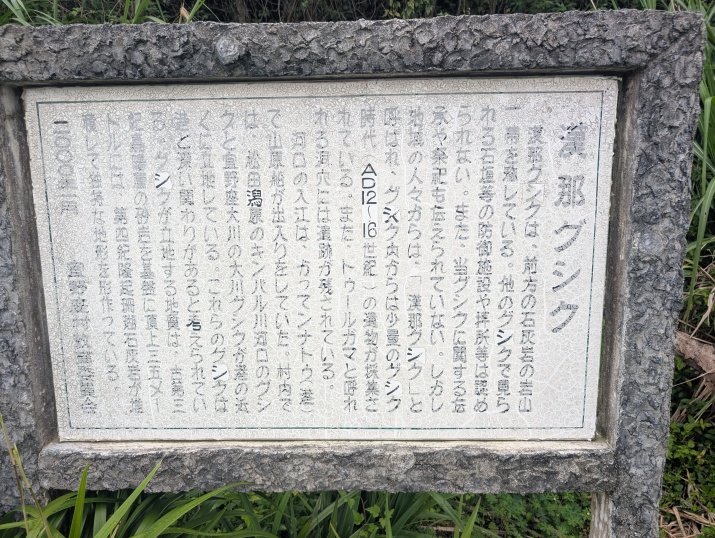 漢那グシク
漢那グシクは、前方の石灰岩の岩山
一帯を称している。他のグシクで見ら
れる石垣等の防御施設や拝所等は認め
られない。また、当グシクに関する伝
承や祭祀も伝えられていない。しかし
地域の人々からは、「漢那グシク」と
呼ばれ、グシク内からは少量のグシク
時代（AD12〜16世紀）の遺物が採集さ
れている。また、トゥールガマと呼ば
れる洞穴には遺跡が残されている。
河口の入江は、かつてンナトゥ（港）
で山原船が出入りをしていた。村内で
は、松田潟原のキンバル川河口のグシ
クと宜野座大川の大川グシクが港の近
くに立地している。これらのグシクは
港と深い関わりがあると考えられてい
る。グシクが立地する地質は、古第三
紀嘉陽層の砂岩を基盤に頂上三五メー
トルには、第四紀隆起珊瑚石灰岩が堆
積して独特な地形を形作っている。
二〇〇〇年 月
宜野座村教育委員会